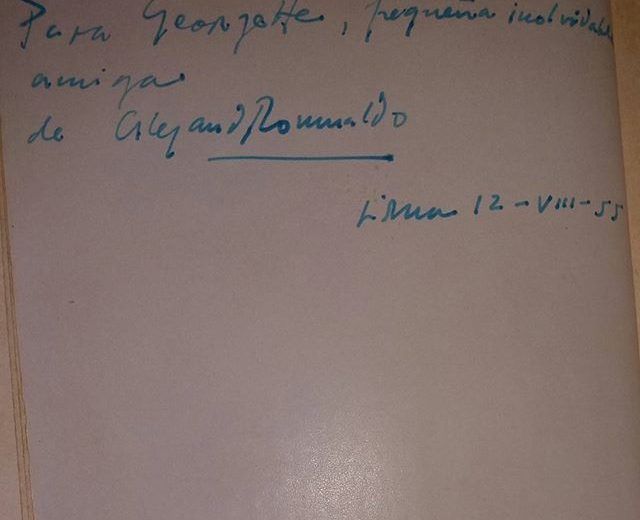 Para Georgette, pequeña inolvidable
amiga
de AlejandRomualdo
Lima 12-VIII-55